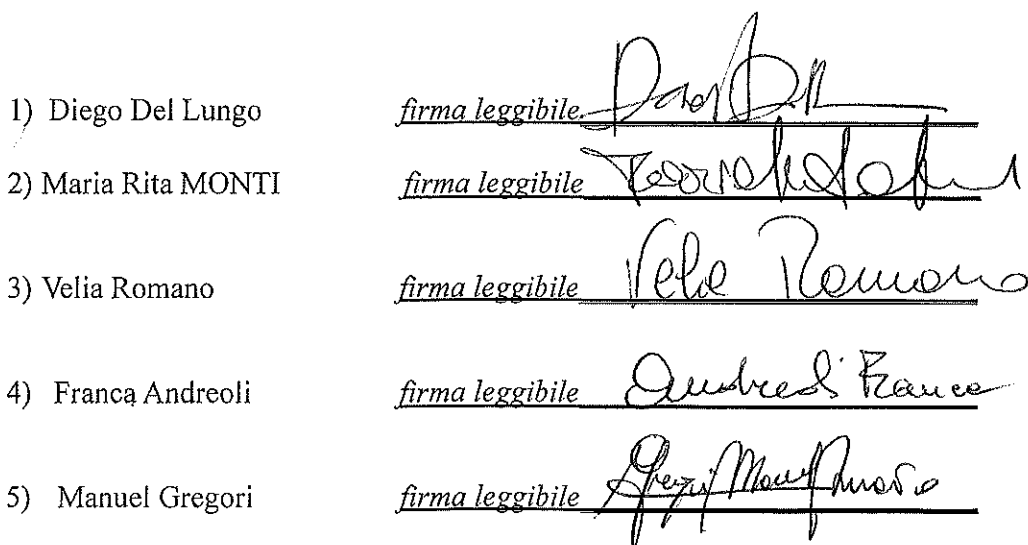 1) Diego Del Lungo firma leggibile
2) Maria Rita MONTI firma leggibile
3) Velia Romano firma leggibile Velia Romano
4) Franca Andreoli firma leggibile Andreoli Franca
5) Manuel Gregori firma leggibile Gregori Manuel